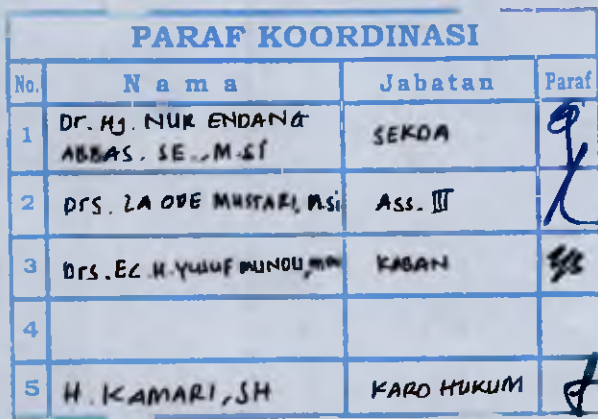 PARAF KOORDINASI
No. Nama Jabatan Paraf
1 Dr. Hj. NUR ENDANG
ABBAS. SE., M.SI SEKDA
2 Drs. LA ODE MUSTARI, M.Si Ass. III
3 Drs. Ec. H. YUSUF MUNDU, KABAN
4
5 H. KAMARI, SH KARO HUKUM